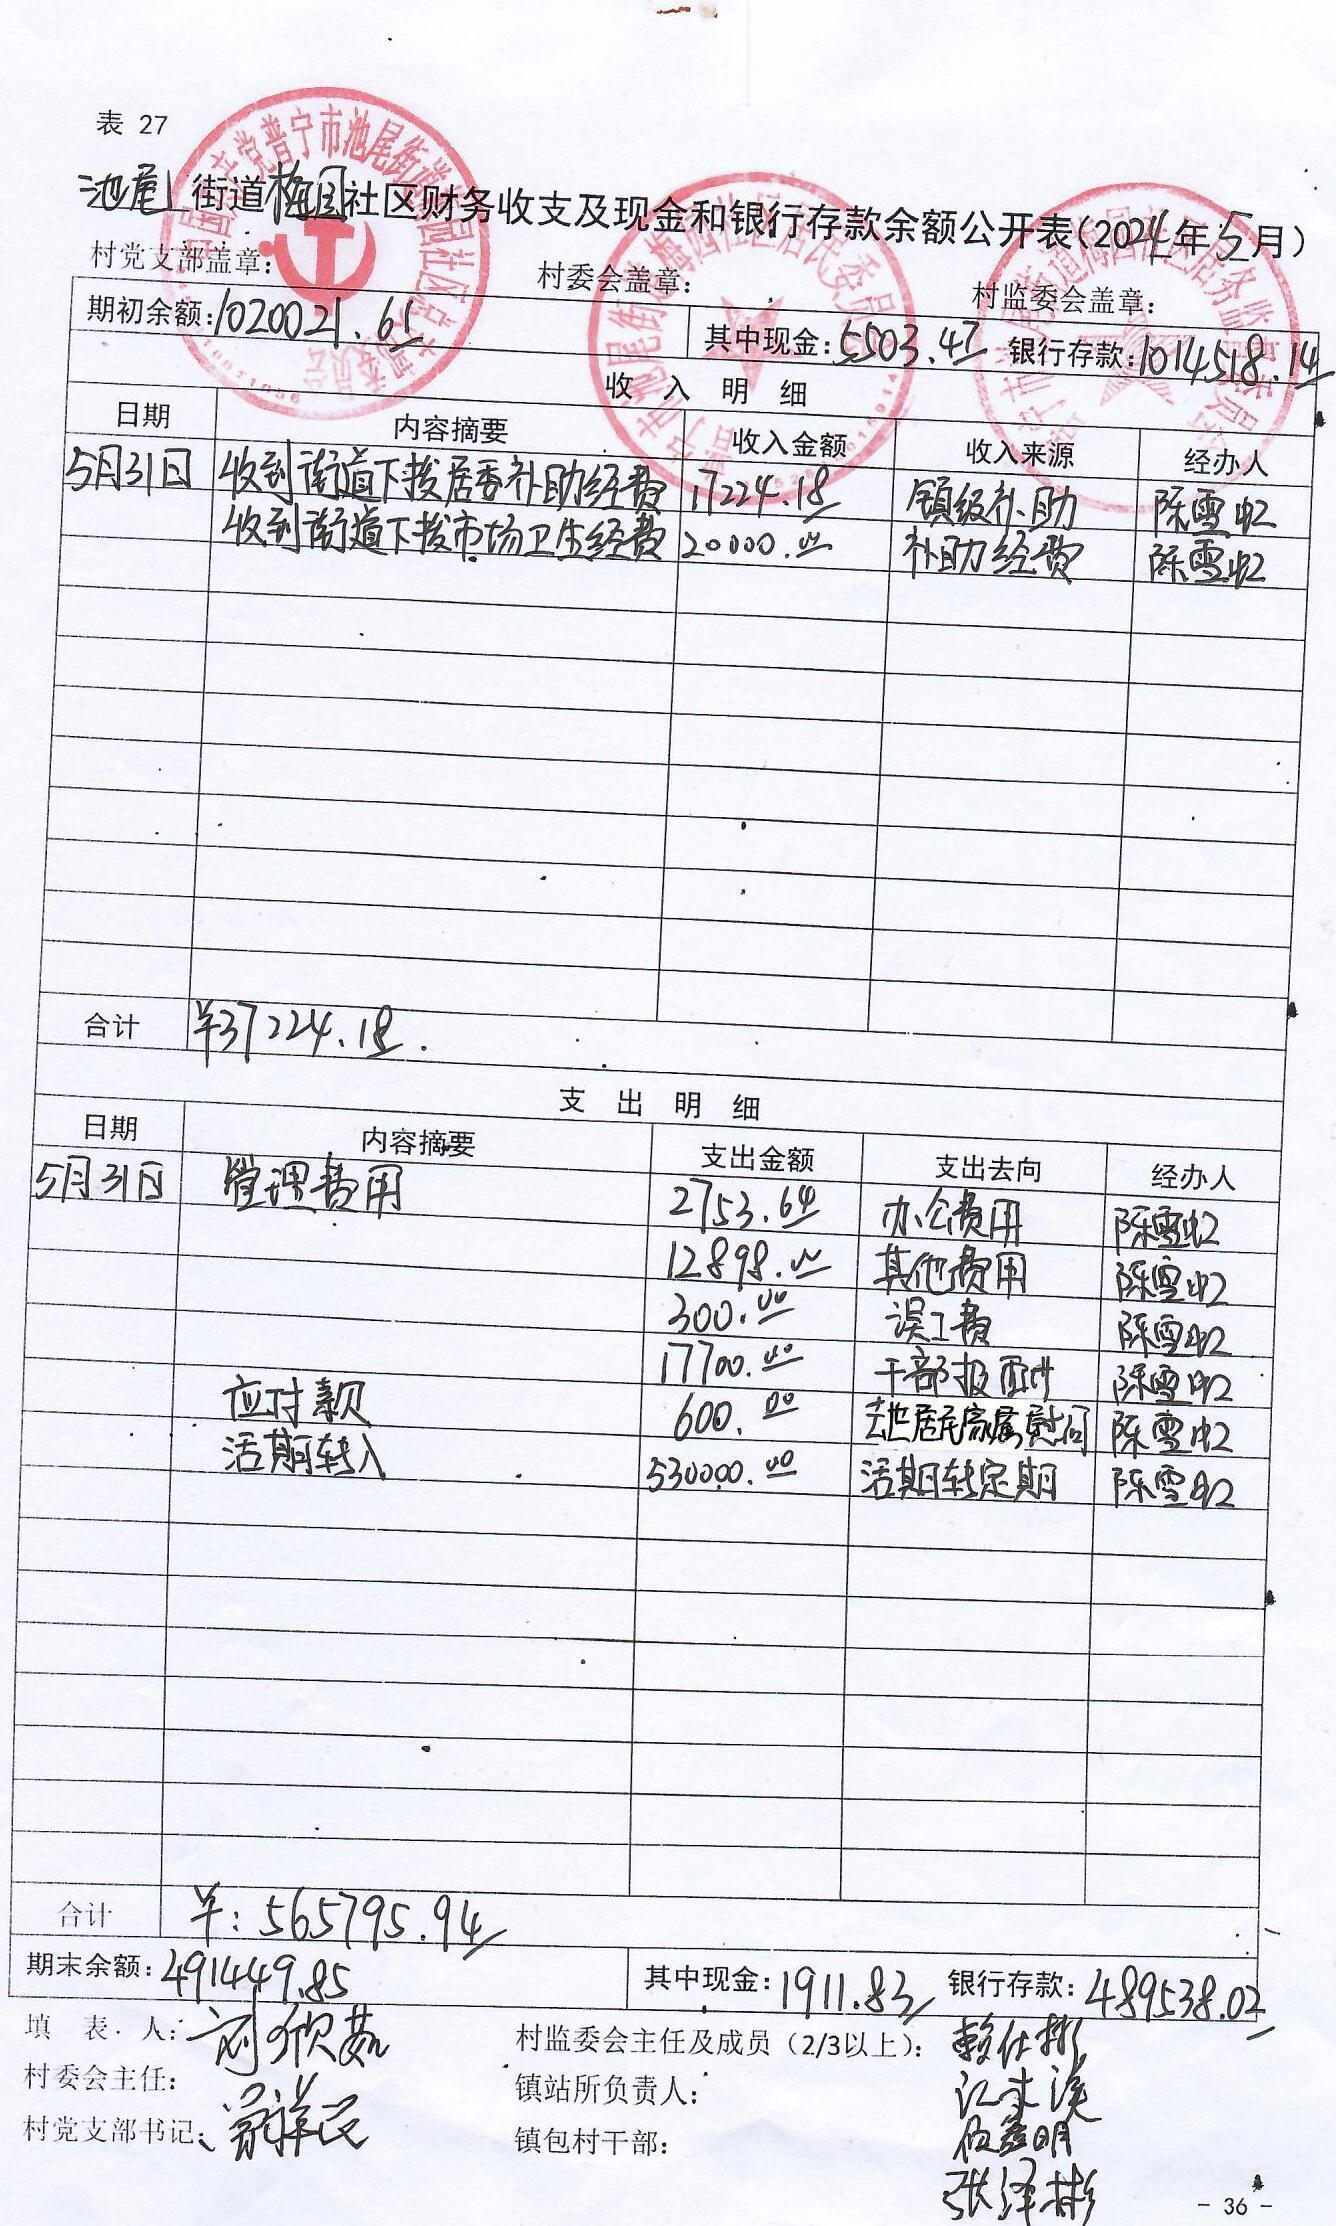 表 27
池尾街道梅园社区财务收支及现金和银行存款余额公开表(2024年5月)
村党支部盖章: 村委会盖章: 村监委会盖章:
期初余额:1020021.61 其中现金:5503.47 银行存款:1014518.14
收 入 明 细
日期 内容摘要 收入金额 收入来源 经办人
5月31日 收到街道下拨居委补助经费 17224.18 镇级补助 陈雪虹
收到街道下拨市场卫生经费 20000.00 补助经费 陈雪虹
合计 ¥37224.18.
支 出 明 细
日期 内容摘要 支出金额 支出去向 经办人
5月31日 管理费用 2753.64 办公费用 陈雪虹
12898.00 其他费用 陈雪虹
300.00 误工费 陈雪虹
17700.00 干部报酬 陈雪虹
应付款 600.00 去世居民家属慰问 陈雪虹
活期转入 530000.00 活期转定期 陈雪虹
合计 ¥:565795.94
期末余额:491449.85 其中现金:1911.83 银行存款:489538.02
填 表 人: 村监委会主任及成员(2/3以上): 赖仕彬
村委会主任: 镇站所负责人:
村党支部书记: 镇包村干部:
张泽彬
- 36 -